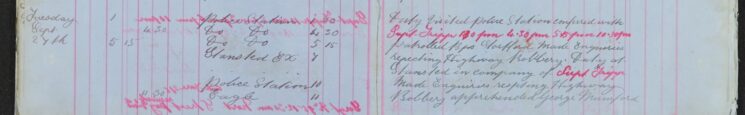 Tuesday 1 Police Station 1 30 Duty Visited Police Station confered with
Sept. 4 30 Do Do 4 30 Supt Fripp 1.30 pm 4.30 pm 5.15 pm 10.30 pm
24th 5 15 Do Do 5 15 patrolled Bps Stortford Made Enquiries
Stansted EX 7 respecting Highway Robbery. Duty at
Stansted in company of Supt Fripp
Police Station 10 Made Enquiries respting Highway
Eagle 11 Robbery apprehended George Mumford